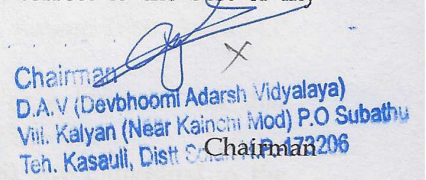 Chairman
D.A.V (Devbhoomi Adarsh Vidyalaya)
Vill. Kalyan (Near Kainchi Mod) P.O Subathu
Teh. Kasauli, Distt Solan H.P. 173206
Chairman